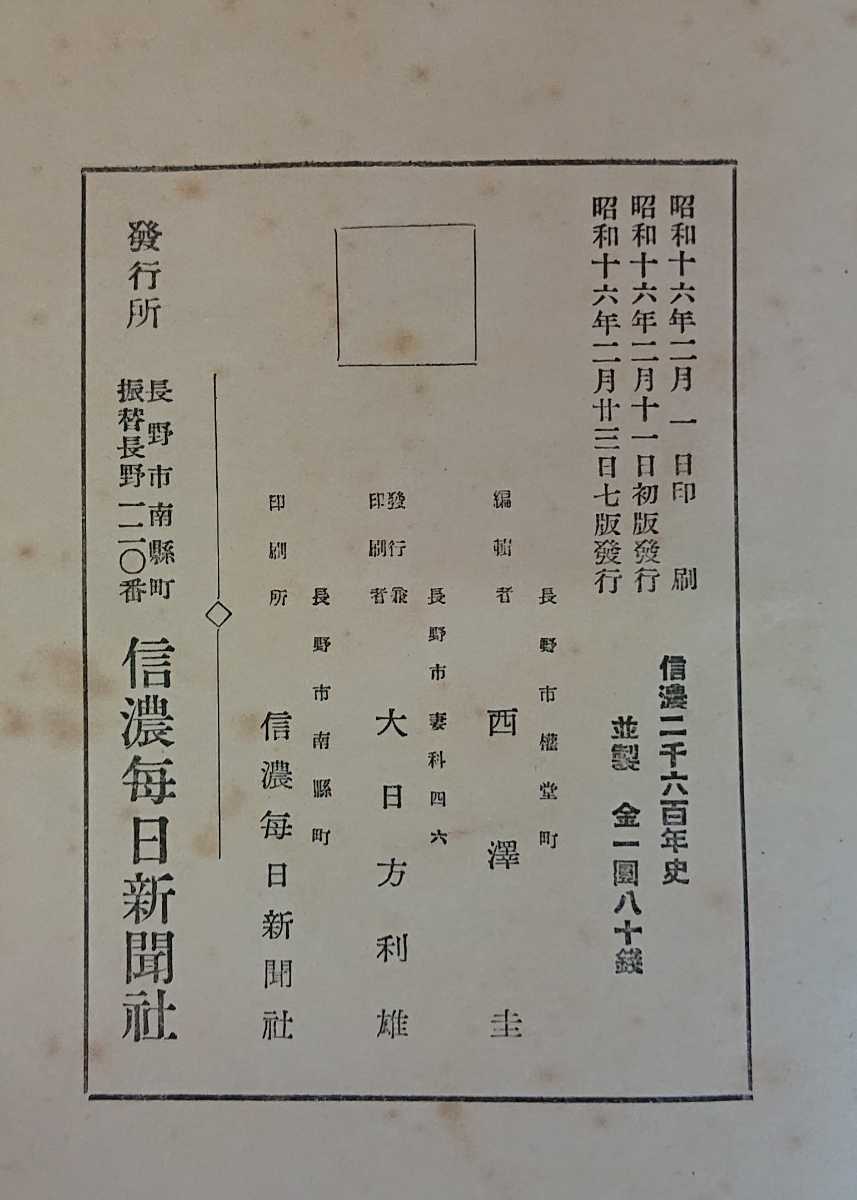 昭和十六年二月一日印刷
昭和十六年二月十一日初版發行
昭和十六年二月廿三日七版發行
信濃二千六百年史
並製 金一圓八十錢
長野市權堂町
編輯者 西澤圭
長野市妻科四六
發行兼
印刷者 大日方利雄
長野市南縣町
印刷所 信濃每日新聞社
發行所
長野市南縣町
振替長野一二〇番
信濃每日新聞社